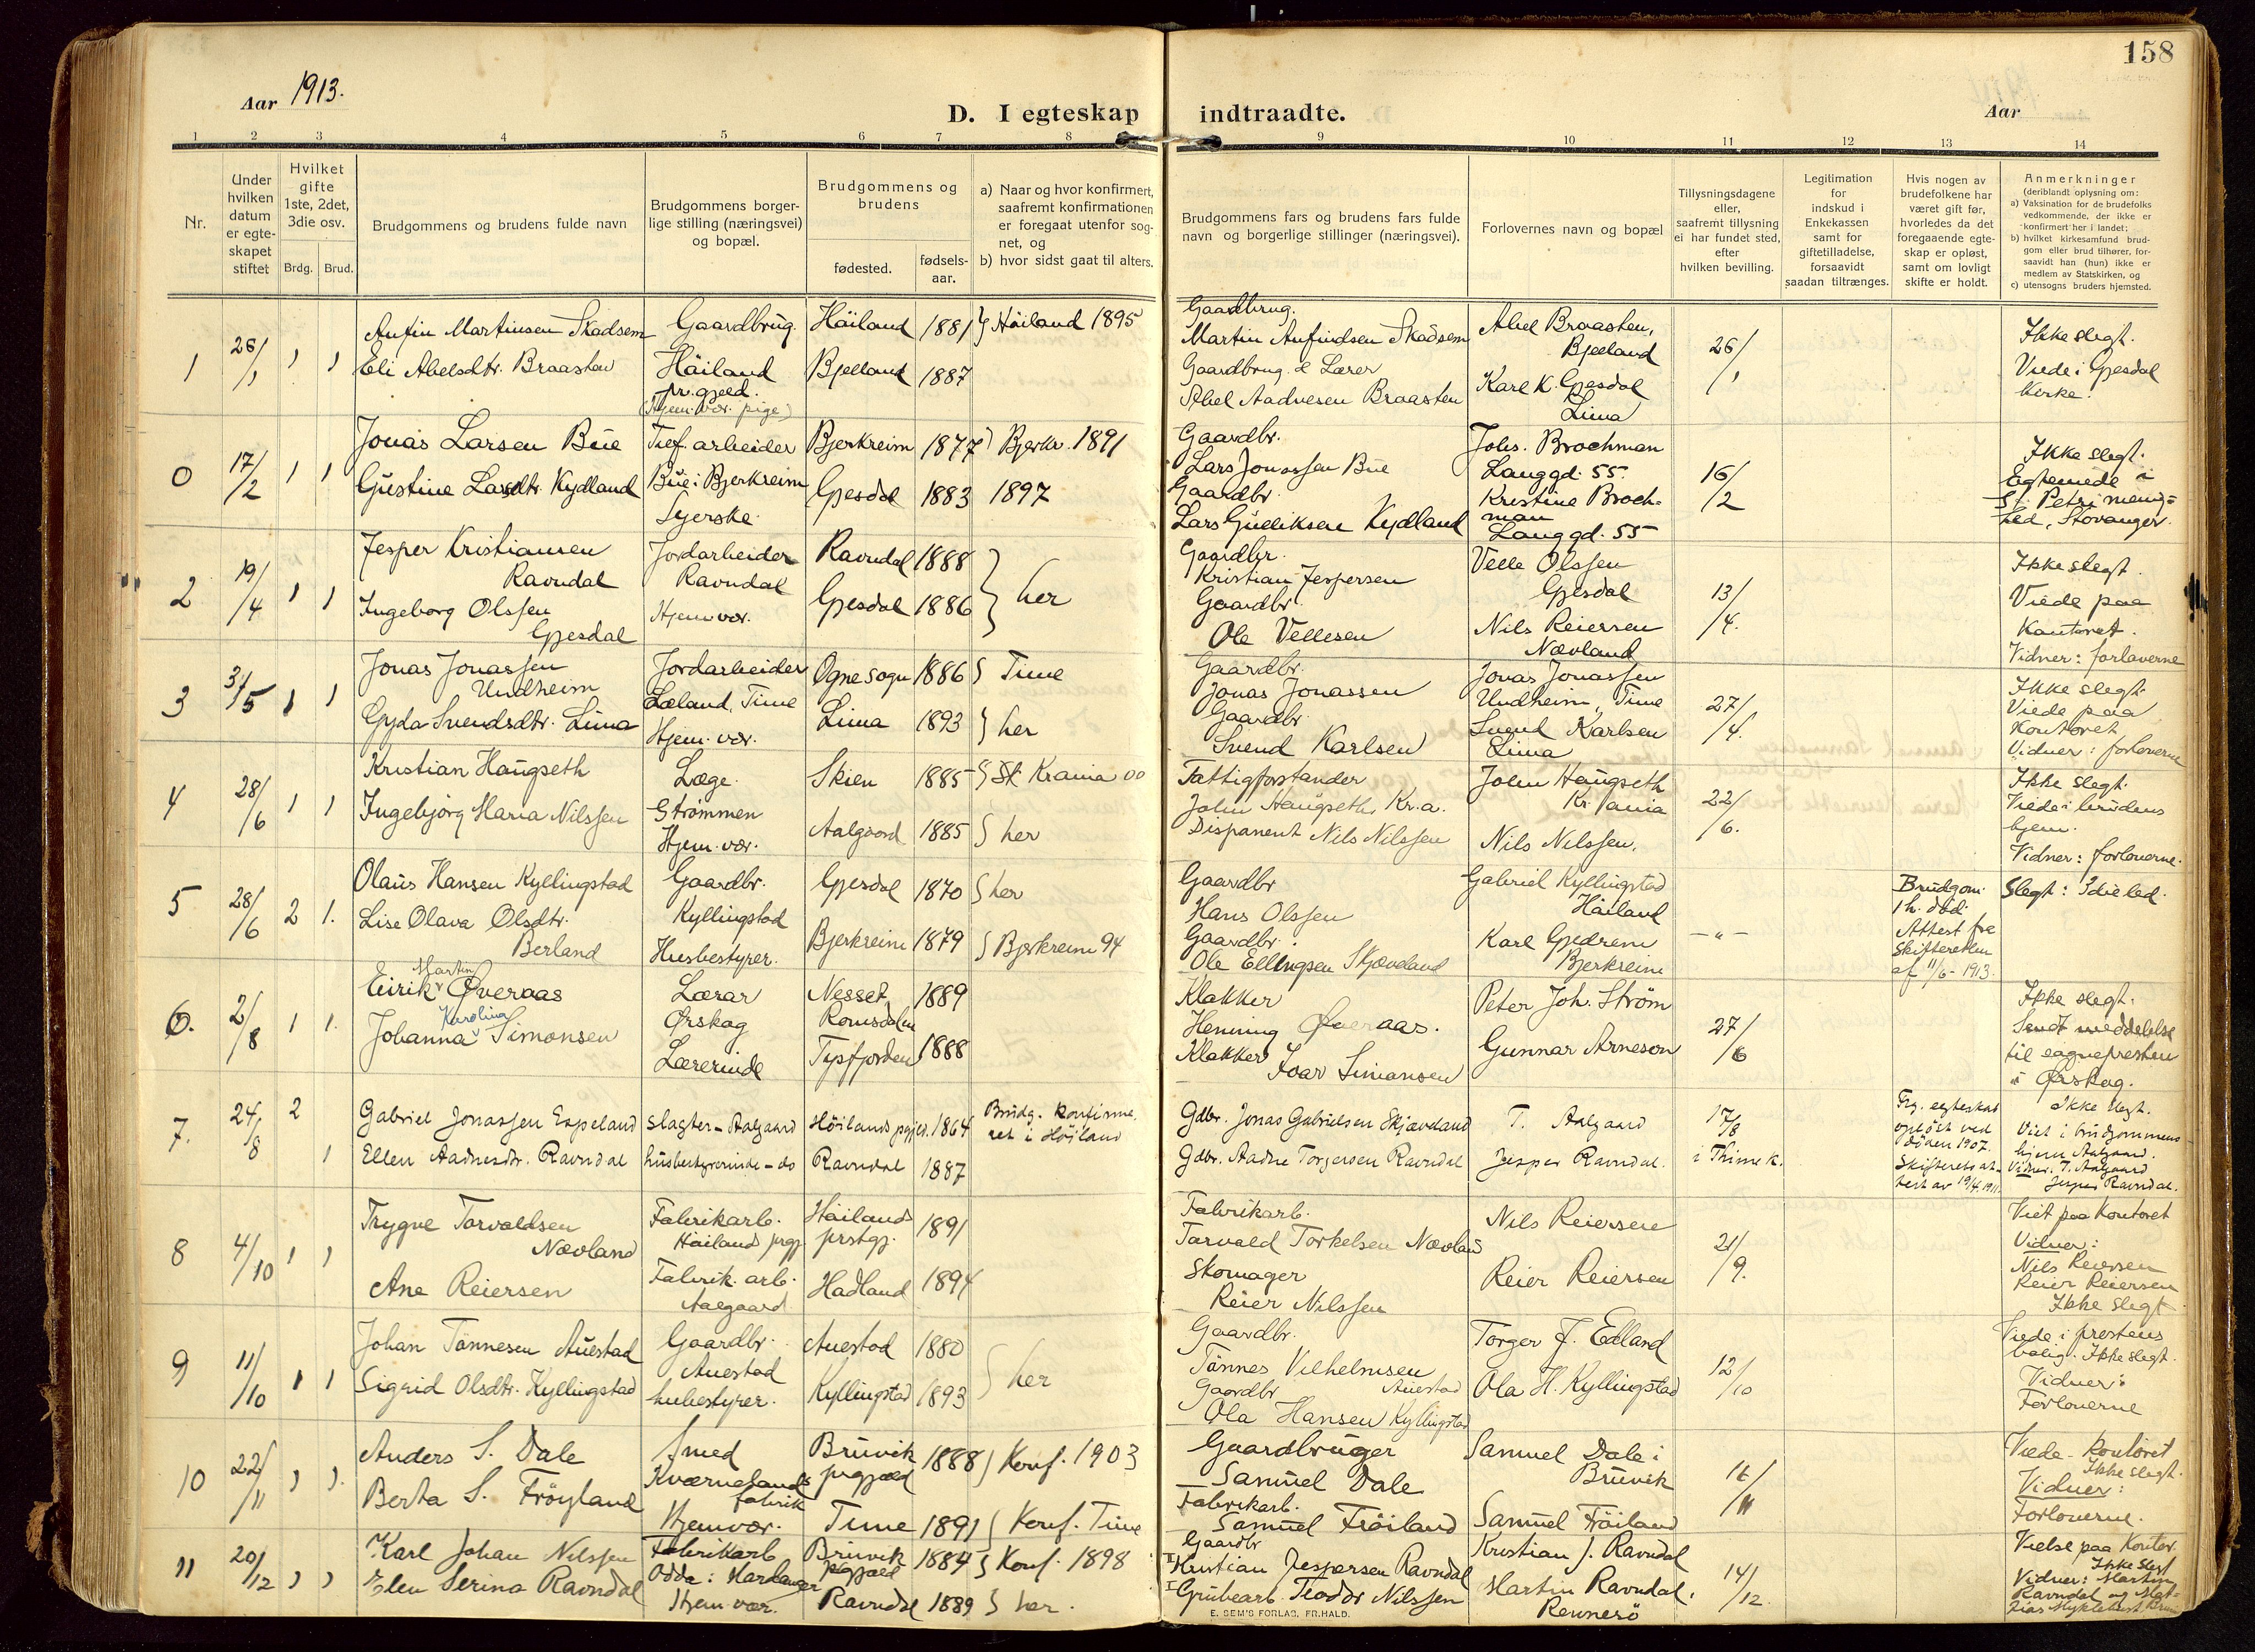 158
Aar 1913.
D. I egteskap indtraadte.
Aar
1 2 3 4 5 6 7 8 9 10 11 12 13 14
Nr.
Under hvilken datum er egteskapet stiftet
Hvilket gifte 1ste, 2det, 3die osv.
Brdg. Brud.
Brudgommens og brudens fulde navn
Brudgommens borgerlige stilling (næringsvei) og bopæl.
Brudgommens og brudens
fødested.
fødselsaar.
a) Naar og hvor konfirmert, saafremt konfirmationen er foregaat utenfor sognet, og
b) hvor sidst gaat til alters.
Brudgommens fars og brudens fars fulde navn og borgerlige stillinger (næringsvei).
Forlovernes navn og bopæl
Tillysningsdagene eller, saafremt tillysning ei har fundet sted, efter hvilken bevilling.
Legitimation for indskud i Enkekassen samt for giftetilladelse, forsaavidt saadan tiltrænges.
Hvis nogen av brudefolkene har været gift før, hvorledes da det foregaaende egteskap er opløst, samt om lovligt skifte er holdt.
Anmerkninger
(deriblandt oplysning om:
a) Vaksination for de brudefolks vedkommende, der ikke er konfirmert her i landet;
b) hvilket kirkesamfund brudgom eller brud tilhører, forsaavidt han (hun) ikke er medlem av Statskirken, og
c) utensogns bruders hjemsted.
1 26/1 1 1
Anfin Martinsen Skadsem
Eli Abelsdtr. Braasten
Gaardbrug.
Häiland
pr.gjeld.
(Hjem. vær. pige)
Häiland 1881 } Häiland 1895
Bjelland 1887
Gaardbrug.
Martin Anfindsen Skadsem
Gaardbrug. & Lærer
Abel Aadnesen Braasten
Abel Braasten,
Bjelland
Karl K. Gjesdal
Lima
26/1
Ikke slegt.
Viede i Gjesdal
kirke.
0 17/2 1 1
Jonas Larsen Bue
Gustine Larsdtr. Kydland
arbeider
Bue i Bjerkreim
Syerske
Bjerkreim 1877 ) Bjerkr. 1891
Gjesdal 1883 1897
Gaardbr.
Lars Jonassen Bue
Gaardbr.
Lars Gudliksen Kydland
Johs. Brochman
Langgd. 55
Kristine Brochman
Langgd. 55
16/2
Ikke slegt.
Egteviede i
St. Petri menighed, Stavanger.
2 19/4 1 1
Jesper Kristiansen
Ravndal
Ingeborg Olssen
Gjesdal
Jordarbeider
Ravndal
Hjemvær.
Ravndal 1888
Gjesdal 1886
} her
Gaardbr.
Kristian Jespersen
Gaardbr.
Ole Vellesen
Velle Olssen
Gjesdal
Nils Reiersen
Nævland
13/4.
Ikke slegt.
Viede paa
Kontoret.
Vidner: forloverne
3 3/5 1 1
Jonas Jonassen
Undheim
Gyda Svendsdtr. Lima
Jordarbeider
Læland, Time
Hjem. vær.
Ogne sogn 1886 } Time
Lima 1893 } her
Gaardbr.
Jonas Jonassen
Gaardbr.
Svend Karlsen
Jonas Jonassen
Undheim, Time
Svend Karlsen
Lima
27/4.
Ikke slegt.
Viede paa
Kontoret
Vidner: forloverne
4 28/6 1 1
Kristian Haugseth
Ingebjörg Maria Nilssen
Læge.
Strömmen
Hjem. vær.
Skien 1885 } St. Krania 00
Aalgaard 1885 } her
Fattigforstander
John Haugseth, Kr.a.
Disponent Nils Nilssen
John Haugseth
Kr.ania
Nils Nilssen.
22/6.
Ikke slegt.
Viede i brudens
hjem.
Vidner: forloverne.
5 28/6 2 1.
Olaus Hansen Kyllingstad
Lise Olava Olsdtr.
Berland
Gaardbr.
Kyllingstad
Husbestyrer.
Gjesdal 1870 } her
Bjerkreim 1879 } Bjerkreim 94
Gaardbr
Hans Olssen
Gaardbr.
Ole Ellingsen Skjæveland
Gabriel Kyllingstad
Häiland
Karl Gjedrem
Bjerkreim
— " —
Brudgom.
1 h. död
Attest fra
Skifteretten
af 11/6 - 1913.
Slegt: 3die led.
6. 2/8 1 1.
Eirik Martin Øveraas
Johanna Karolina Simonsen
Lærar
Ørskog
Lærerinde
Nesset, 1889
Romsdalen
Tysfjorden 1888
Klakker
Henning Øveraas.
Klakker Ivar Simonsen
Peter Joh. Ström
Gunnar Arneson
27/6
Ikke slegt.
Sendt meddelelse
til sognepresten
i Ørskog.
7. 24/8 2 1
Gabriel Jonassen Espeland
Ellen Aadnesdtr. Ravndal
Slagter - Aalgaard
husbestyrerinde - do
Höilands pgjel. 1864
Ravndal 1887
Brudg. konfirmeret i Höiland
Gdbr. Jonas Gabrielsen Skjæveland
Gdbr. Aadne Torgersen Ravndal
T. Aalgaard
Jesper Ravndal.
17/8
i Thime k.
Frg. egteskab
oplöst ved
döden 1907.
Skifteretsattest av 19/4. 1911.
Ikke slegt.
Viet i brudgommens
hjem Aalgaard.
Vidner: T. Aalgaard
Jesper Ravndal.
8 4/10 1 1
Trygve Torvaldsen
Nævland
Ane Reiersen
Fabrikarb.
Häilands prgj.
Fabrik. arb.
Aalgaard
Häilands 1891
prstgj.
Hadland 1894
Fabrikarb.
Torvald Torkelsen Nævland
Skomager
Reier Nilssen
Nils Reiersen
Reier Reiersen
21/9.
Viet paa Kontoret
Vidner:
Nils Reiersen
Reier Reiersen
Ikke slegt.
9 11/10 1 1
Johan Tönnesen Auestad
Sigrid Olsdtr. Kyllingstad
Gaardbr.
Auestad
husbestyrer.
Auestad 1880
Kyllingstad 1893
} her
Gaardbr.
Tönnes Vilhelmsen
Auestad
Gaardbr
Ola Hansen Kyllingstad
Torger J. Edland
Ola H. Kyllingstad
12/10
Viede i prestens
bolig. Ikke slegt.
Vidner:
Forloverne
10 22/11 1 1.
Anders S. Dale
Berta S. Fröyland
Smed
Kværnelands
fabrik
Hjemvær.
Bruvik 1888 } Konf. 1903
prgjæld
Time 1891 } Konf. Time
Gaardbruger
Samuel Dale
Fabrikarb.
Samuel Fröiland
Samuel Dale i
Bruvik
Samuel Fröiland
16/11
Viede - kontoret
Ikke slegt.
Vidner:
Forloverne.
11 20/12 1 1
Karl Johan Nilssen
Elen Serina Ravndal
Fabrikarb
Odda i Hardanger
Hjem. vær.
Bruvik 1884 } Konf. 1898
prgjæld
Ravndal 1889 } her.
Gaardbr
II Kristian Jespersen Ravndal
I Grubearb. Teodor Nilssen
Kristian J. Ravndal
Martin Ravndal.
Rennesö
14/12.
Vielse paa Kontor.
Ikke slegt
Vidner: Martin
Ravndal og Mathias Myklebust
E. SEM'S FORLAG, FR.HALD.